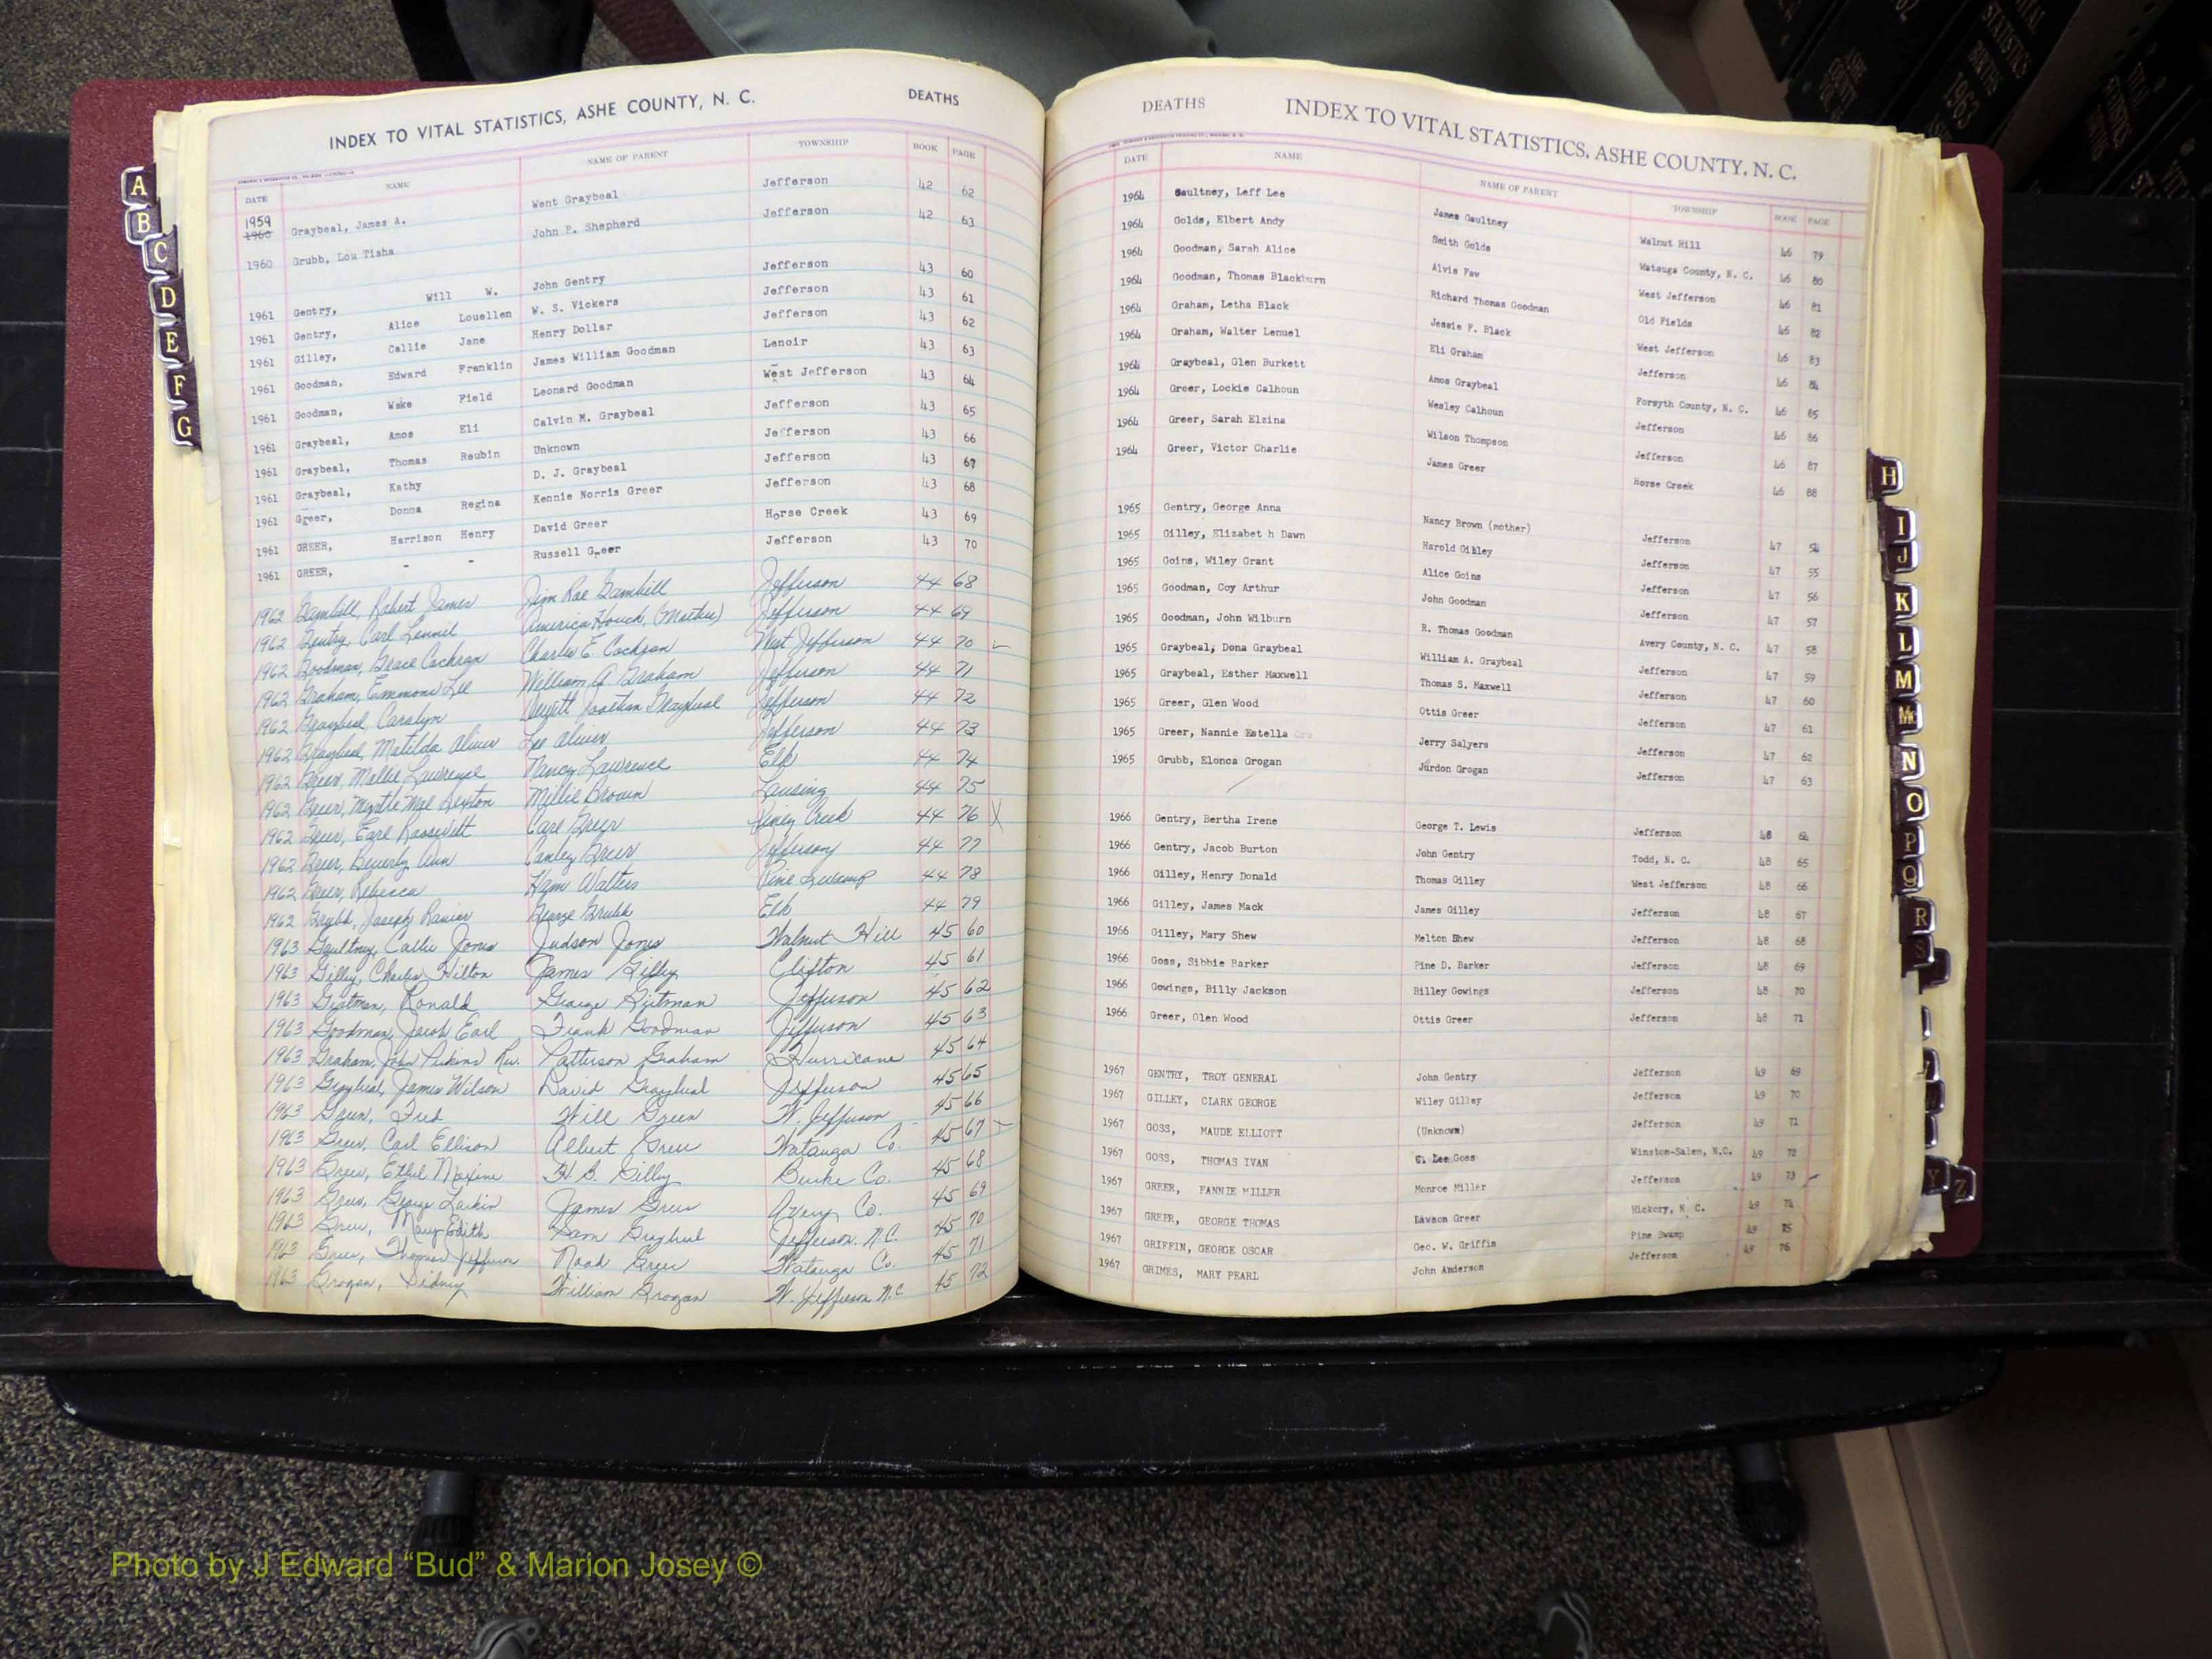 INDEX TO VITAL STATISTICS, ASHE COUNTY, N. C. DEATHS
DATE NAME NAME OF PARENT TOWNSHIP BOOK PAGE
1959
1960 Graybeal, James A. Went Graybeal Jefferson 42 62
1960 Grubb, Lou Tisha John P. Shepherd Jefferson 42 63
1961 Gentry, Will W. John Gentry Jefferson 43 60
1961 Gentry, Alice Louellen W. S. Vickers Jefferson 43 61
1961 Gilley, Callie Jane Henry Dollar Jefferson 43 62
1961 Goodman, Edward Franklin James William Goodman Lenoir 43 63
1961 Goodman, Wake Field Leonard Goodman West Jefferson 43 64
1961 Graybeal, Amos Eli Calvin M. Graybeal Jefferson 43 65
1961 Graybeal, Thomas Reubin Unknown Jefferson 43 66
1961 Graybeal, Kathy D. J. Graybeal Jefferson 43 67
1961 Greer, Donna Regina Kennie Norris Greer Jefferson 43 68
1961 GREER, Harrison Henry David Greer Horse Creek 43 69
1961 GREER, - - Russell Greer Jefferson 43 70
1962 Gambill, Robert James Jim Roe Gambill Jefferson 44 68
1962 Gentry, Carl Lennil America Houck, (Mother) Jefferson 44 69
1962 Goodman, Grace Cochran Charlie E. Cochran West Jefferson 44 70
1962 Graham, Emmons Lee William A. Graham Jefferson 44 71
1962 Graybeal, Carolyn Graybeal Jefferson 44 72
1962 Graybeal, Matilda Oliver Lee Oliver Jefferson 44 73
1962 Greer, Mollie Lawrence Nancy Lawrence Elk 44 74
1962 Greer, Myrtle Mae Sexton Millie Brown Lansing 44 75
1962 Greer, Earl Roosevelt Carl Greer Piney Creek 44 76
1962 Greer, Beverly Ann Conley Greer Jefferson 44 77
1962 Greer, Rebecca Ham Walters Pine Swamp 44 78
1962 Grubb, Joseph George Grubb Elk 44 79
1963 Gaultney, Callie Jones Judson Jones Walnut Hill 45 60
1963 Gilley, Charles Hilton James Gilley Clifton 45 61
1963 Ronald George Jefferson 45 62
1963 Goodman, Jacob Earl Frank Goodman Jefferson 45 63
1963 Graham, John Perkins Rev. Patterson Graham Hurricane 45 64
1963 Graybeal, James Wilson David Graybeal Jefferson 45 65
1963 Green, Fred Will Green W. Jefferson 45 66
1963 Greer, Carl Ellison Albert Greer Watauga Co. 45 67
1963 Greer, Ethel Maxine H. S. Gilley Burke Co. 45 68
1963 Greer, George Larkin James Greer Avery Co. 45 69
1963 Greer, Mary Edith Sam Graybeal Jefferson, N.C. 45 70
1963 Greer, Thomas Jefferson Noah Greer Watauga Co. 45 71
1963 Grogan, Sidney William Grogan W. Jefferson N.C. 45 72
DEATHS INDEX TO VITAL STATISTICS, ASHE COUNTY, N. C.
DATE NAME NAME OF PARENT TOWNSHIP BOOK PAGE
1964 Gaultney, Leff Lee James Gaultney Walnut Hill 46 79
1964 Golds, Elbert Andy Smith Golds Watauga County, N. C. 46 80
1964 Goodman, Sarah Alice Alvis Faw West Jefferson 46 81
1964 Goodman, Thomas Blackburn Richard Thomas Goodman Old Fields 46 82
1964 Graham, Letha Black Jessie F. Black West Jefferson 46 83
1964 Graham, Walter Lenuel Eli Graham Jefferson 46 84
1964 Graybeal, Glen Burkett Amos Graybeal Forsyth County, N. C. 46 85
1964 Greer, Lockie Calhoun Wesley Calhoun Jefferson 46 86
1964 Greer, Sarah Elzina Wilson Thompson Jefferson 46 87
1964 Greer, Victor Charlie James Greer Horse Creek 46 88
1965 Gentry, George Anna Nancy Brown (mother) Jefferson 47 54
1965 Gilley, Elizabet h Dawn Harold Gilley Jefferson 47 55
1965 Goins, Wiley Grant Alice Goins Jefferson 47 56
1965 Goodman, Coy Arthur John Goodman Jefferson 47 57
1965 Goodman, John Wilburn R. Thomas Goodman Avery County, N. C. 47 58
1965 Graybeal, Dona Graybeal William A. Graybeal Jefferson 47 59
1965 Graybeal, Esther Maxwell Thomas S. Maxwell Jefferson 47 60
1965 Greer, Glen Wood Ottis Greer Jefferson 47 61
1965 Greer, Nannie Estella Jerry Salyers Jefferson 47 62
1965 Grubb, Elonca Grogan Jurdon Grogan Jefferson 47 63
1966 Gentry, Bertha Irene George T. Lewis Jefferson 48 64
1966 Gentry, Jacob Burton John Gentry Todd, N. C. 48 65
1966 Gilley, Henry Donald Thomas Gilley West Jefferson 48 66
1966 Gilley, James Mack James Gilley Jefferson 48 67
1966 Gilley, Mary Shew Melton Shew Jefferson 48 68
1966 Goss, Sibbie Barker Pine D. Barker Jefferson 48 69
1966 Gowings, Billy Jackson Billey Gowings Jefferson 48 70
1966 Greer, Glen Wood Ottis Greer Jefferson 48 71
1967 GENTRY, TROY GENERAL John Gentry Jefferson 49 69
1967 GILLEY, CLARK GEORGE Wiley Gilley Jefferson 49 70
1967 GOSS, MAUDE ELLIOTT (Unknown) Jefferson 49 71
1967 GOSS, THOMAS IVAN C. Lee Goss Winston-Salem, N.C. 49 72
1967 GREER, FANNIE MILLER Monroe Miller Jefferson 49 73
1967 GREER, GEORGE THOMAS Lawson Greer Hickory, N. C. 49 74
1967 GRIFFIN, GEORGE OSCAR Geo. W. Griffin Pine Swamp 49 75
1967 GRIMES, MARY PEARL John Anderson Jefferson 49 76
A
B
C
D
E
F
G
H
I
J
K
L
M
Mc
N
O
P
Q
R
S
Y
Z
VITAL STATISTICS BIRTHS 1963
Photo by J Edward “Bud” & Marion Josey ©